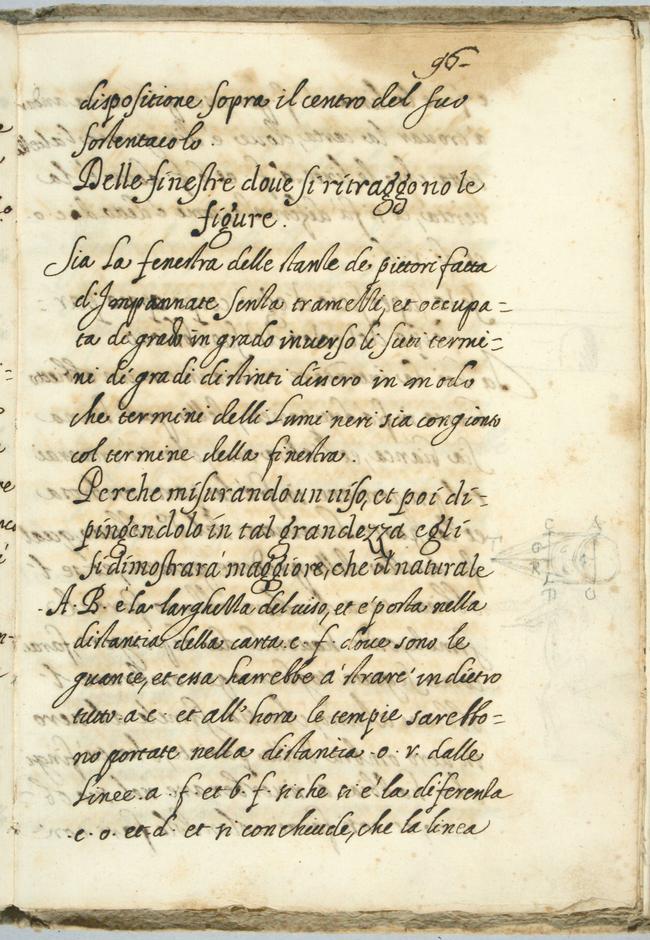 96-
dispositione sopra il centro del suo
sostentacolo
Delle finestre doue si ritraggono le
figure.
Sia la fenestra delle stanze de pittori fatta
d'Impannate senza tramezzi, et occupa=
ta di grado in grado inuerso li suoi termi=
ni di gradi distinti di nero in modo
che termini delli Lumi neri sia congionto
col termine della finestra.
Perche misurando un uiso, et poi di=
pingendolo in tal grandezza egli
si dimostrarà maggiore, che il naturale
.A.B. è la larghezza del uiso, et è posta nella
distantia della carta c. f. doue sono le
guance, et essa harrebbe à strare' indietro
tutto .a.c. et all'hora le tempie sarebbo=
no portate nella distantia .o.r. dalle
Linee .a.f. et b.f. si che ci è la diferenza
.c.o. et d. et si conchiude, che la linea